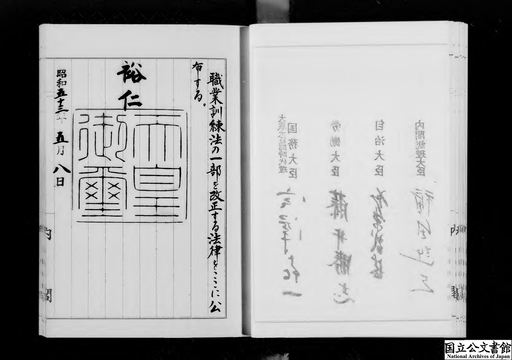 職業訓練法の一部を改正する法律をここに公
布する。
裕仁
天皇
御璽
昭和五十三年五月八日
内閣
内閣総理大臣
自治大臣
労働大臣
藤井勝志
国務大臣
内閣
国立公文書館
National Archives of Japan